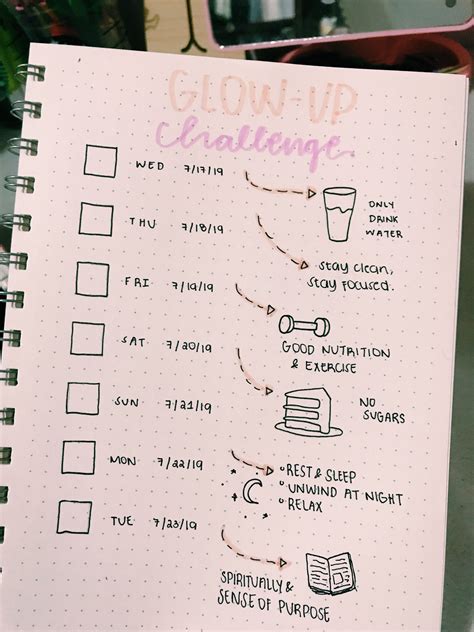 GLOW-UP
challenge.
WED 7/17/19
ONLY
DRINK
WATER
THU 7/18/19
stay clean,
stay focused.
FRI 7/19/19
GOOD NUTRITION
& EXERCISE
SAT 7/20/19
NO
SUGARS
SUN 7/21/19
MON 7/22/19
REST & SLEEP
UNWIND AT NIGHT
RELAX
TUE 7/23/19
SPIRITUALLY &
SENSE OF PURPOSE